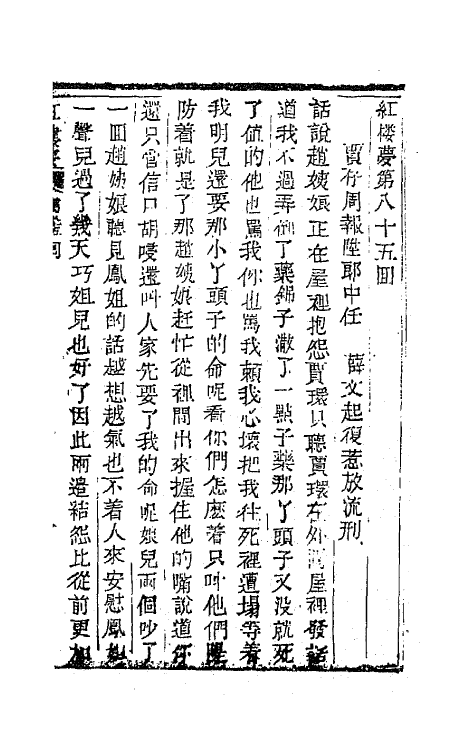 紅楼夢第八十五囬
賈存周報陞郎中任　薛文起復惹放流刑
話說趙姨娘正在屋裡抱怨賈環只聽賈環在外間屋裡發話
道我不過弄倒了藥銱子潵了一點子藥那丫頭子又没就死
了值的他也罵我你也罵我頼我心壞把我徃死裡遭塲等着
我明兒還要那小丫頭子的命呢看你們怎麽着只叫他們隄
防着就是了那趙姨娘赶忙從裡間出來握住他的嘴說道你
還只管信口胡唚還叫人家先要了我的命呢娘兒兩個吵了
一囬趙姨娘聽見鳳姐的話越想越氣也不着人來安慰鳳姐
一聲兒過了幾天巧姐兒也好了因此兩邉結怨比從前更加